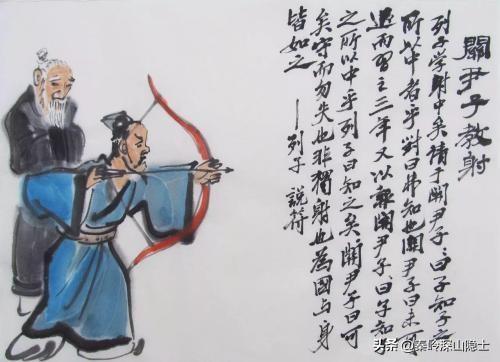 關尹子教射
列子学射中矣请于關尹子曰子知子之
所以中者乎對曰弗知也關尹子曰未可
退而習之三年又以報關尹子曰子知
之所以中乎列子曰知之矣關尹子曰可
矣守而勿失也非獨射也為國与身
皆如之
——列子 說符
头条@秦岭深山隐士